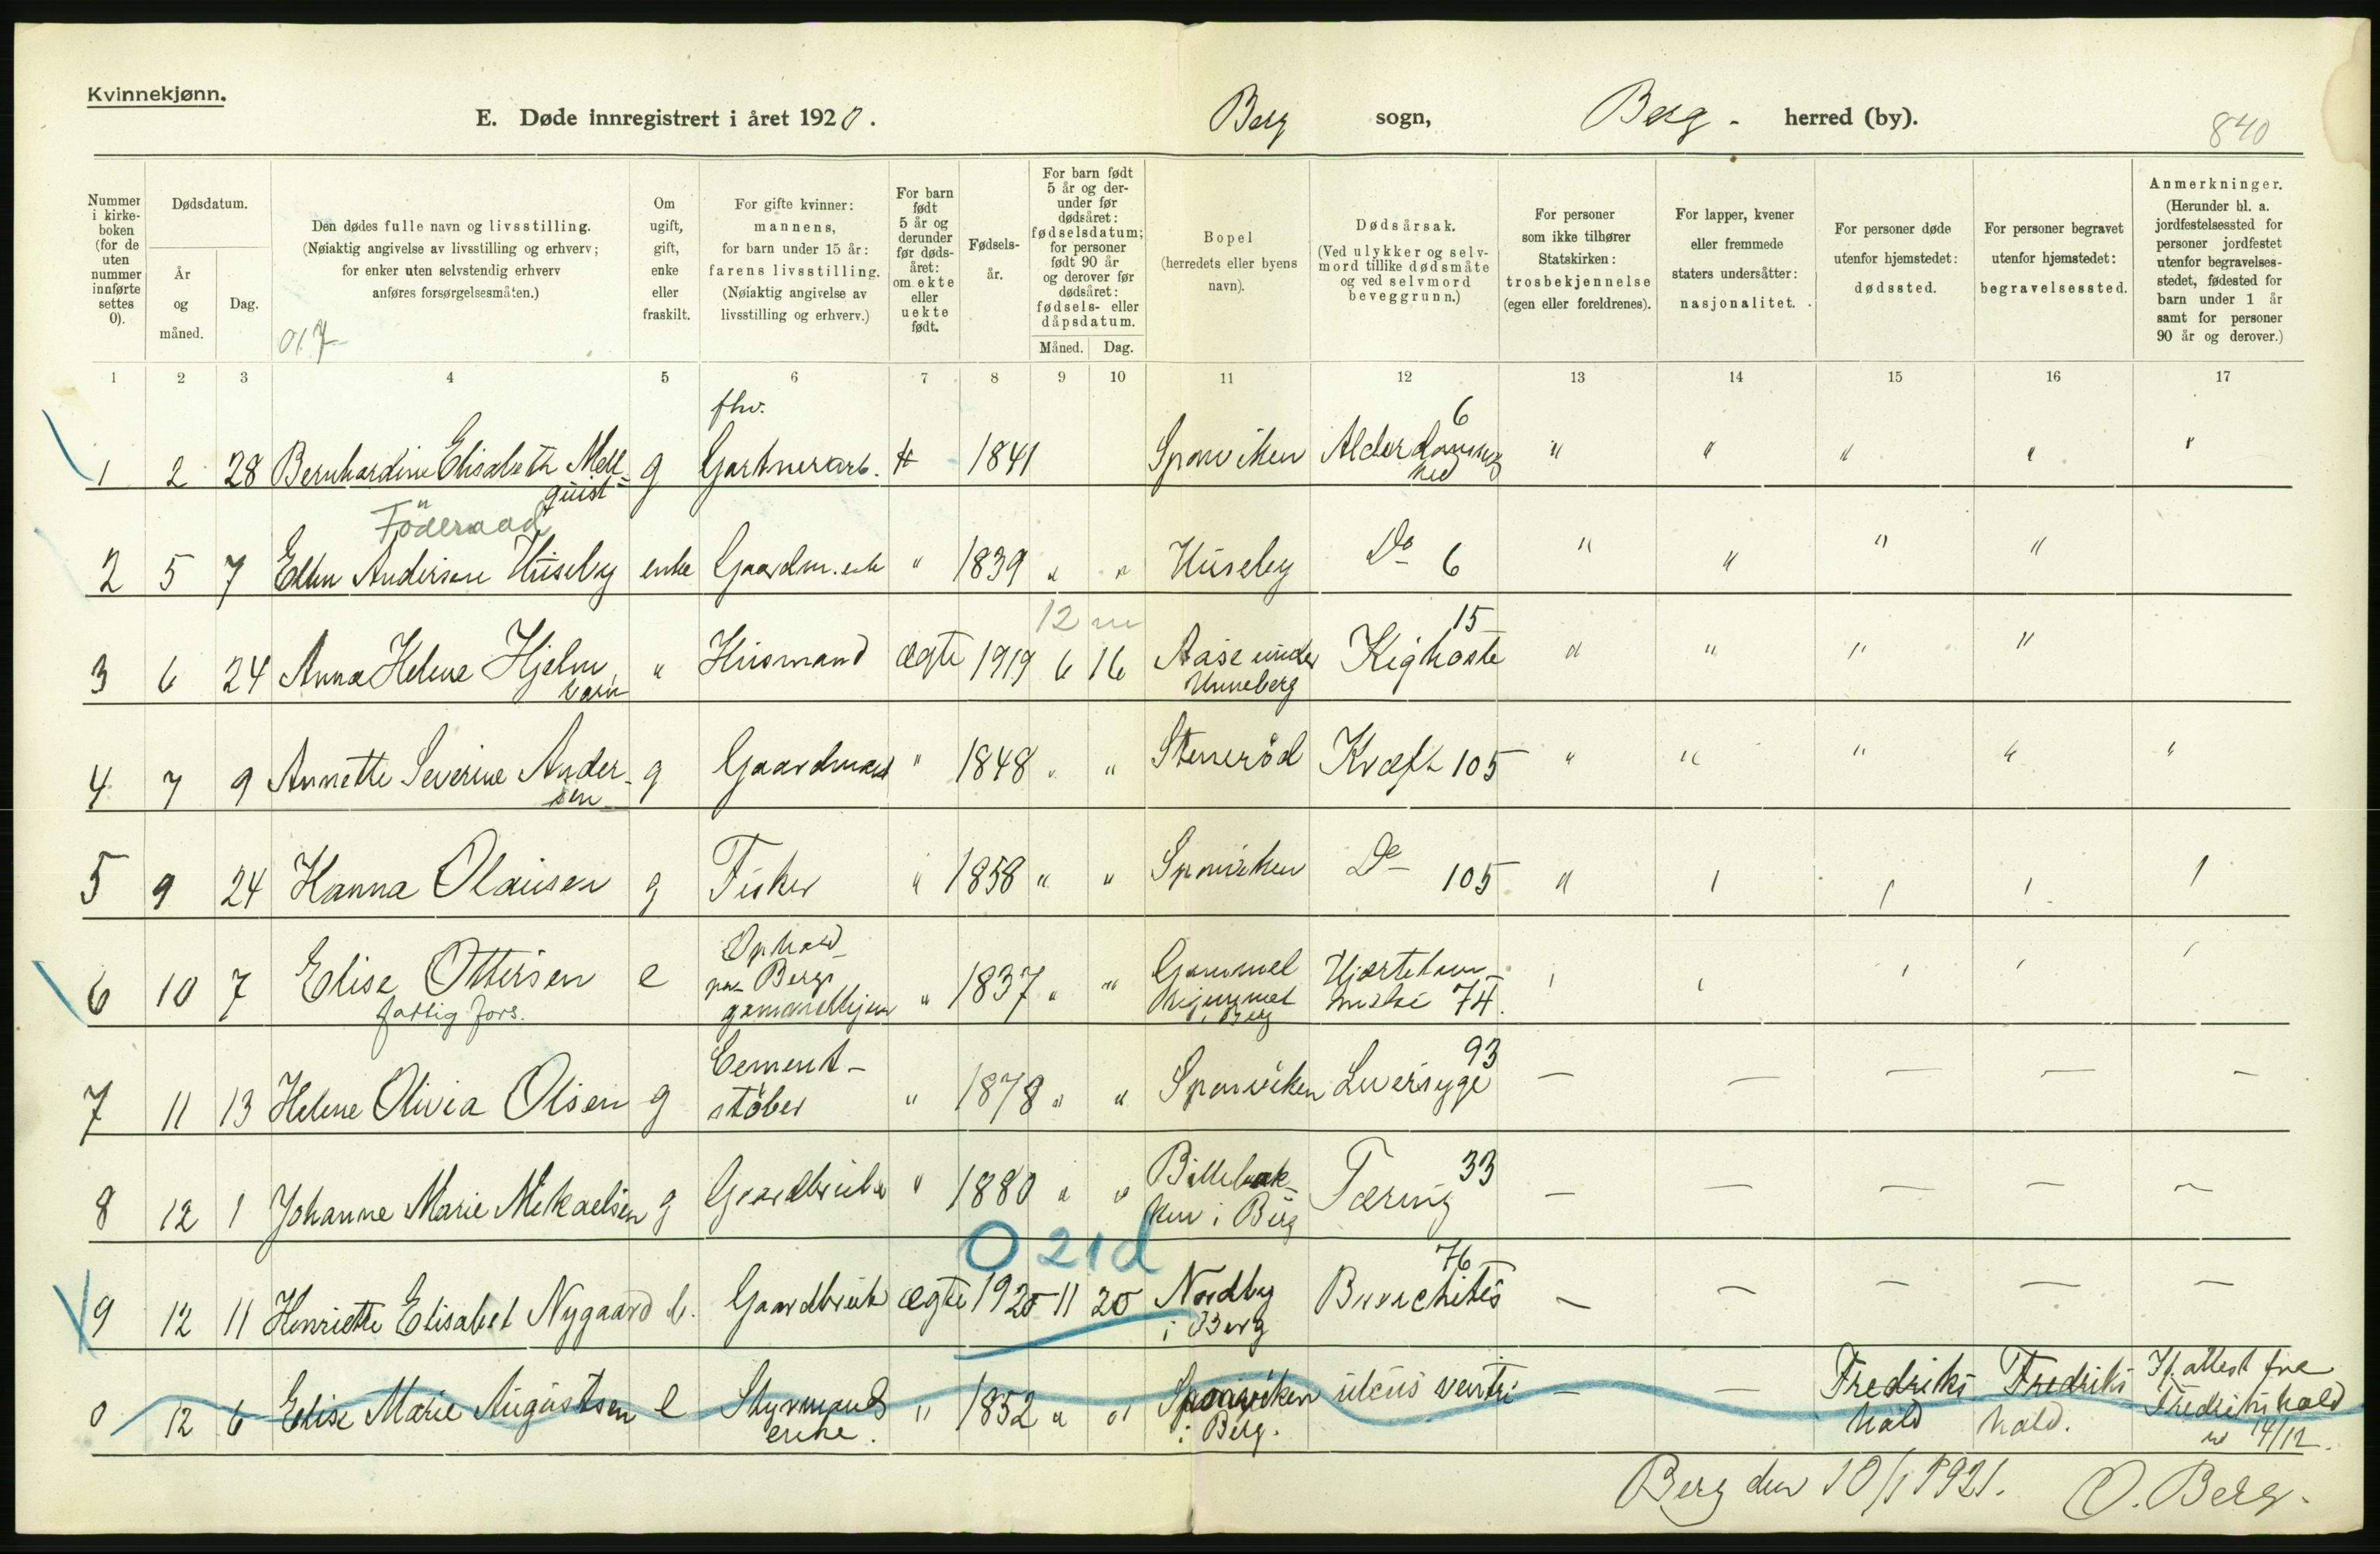 Kvinnekjønn.
E. Døde innregistrert i året 1920. Berg sogn, Berg - herred (by).
840
Nummer i kirkeboken (for de uten nummer innførte settes 0).
Dødsdatum.
År og måned.
Dag.
Den dødes fulle navn og livsstilling.
(Nøiaktig angivelse av livsstilling og erhverv;
for enker uten selvstendig erhverv
anføres forsørgelsesmåten.)
017
Om ugift, gift, enke eller fraskilt.
For gifte kvinner:
mannens,
for barn under 15 år:
farens livsstilling.
(Nøiaktig angivelse av
livsstilling og erhverv.)
For barn født 5 år og derunder før dødsåret: om ekte eller uekte født.
Fødselsår.
For barn født 5 år og derunder før dødsåret: fødselsdatum; for personer født 90 år og derover før dødsåret: fødsels- eller dåpsdatum.
Måned. Dag.
Bopel
(herredets eller byens navn).
Dødsårsak.
(Ved ulykker og selvmord tillike dødsmåte og ved selvmord beveggrunn.)
For personer som ikke tilhører Statskirken: trosbekjennelse (egen eller foreldrenes).
For lapper, kvener eller fremmede staters undersåtter: nasjonalitet.
For personer døde utenfor hjemstedet: dødssted.
For personer begravet utenfor hjemstedet: begravelsessted.
Anmerkninger.
(Herunder bl. a. jordfestelsessted for personer jordfestet utenfor begravelsesstedet, fødested for barn under 1 år samt for personer 90 år og derover.)
1 2 3 4 5 6 7 8 9 10 11 12 13 14 15 16 17
fhv. 6
1 2 28 Bernhardine Elisabeth Mell- g Gartnerarb. 1841 Sponviken Alderdoms " " " " "
quist
Föderaad
2 5 7 Ellen Andersen Huseby enke Gaardm.enke " 1839 " " Huseby Do 6 " " " "
12 m 15
3 6 24 Anna Helene Hjelm " Husmand ægte 1919 6 16 Aase under Kighoste " " " "
barn Unneberg
4 7 9 Annette Severine Ander- g Gaardmand " 1848 " " Stenerød Kræft 105 " " " " "
sen
5 9 24 Hanna Olausen g Fisker " 1858 " " Sponviken Do 105 "
Ophold
6 10 7 Elise Ottersen e paa Bergs " 1837 " " Gammel
fattig fors. gamlehjem hjemmet i Berg 74.
Cement- 93
7 11 13 Helene Olivia Olsen g støber " 1878 " " Sponviken Leversyge — — — — —
8 12 1 Johanne Marie Mikaelsen g Gaardbruker " 1880 " " Billebak- Tæring 33 — — — — —
ken i Berg
0 21d 76
9 12 11 Henriette Elisabet Nygaard b. Gaardbruk ægte 1920 11 20 Nordby Bronchitis — — — — —
i Berg
0 12 6 Elise Marie Augustsen e Styrmands " 1852 " " Sponviken ulcus ventri — — Fredriks Fredriks attest fra
enke. i Berg. hald hald. Fredrikshald
14/12.
Berg den 10/1 1921. O. Berg.